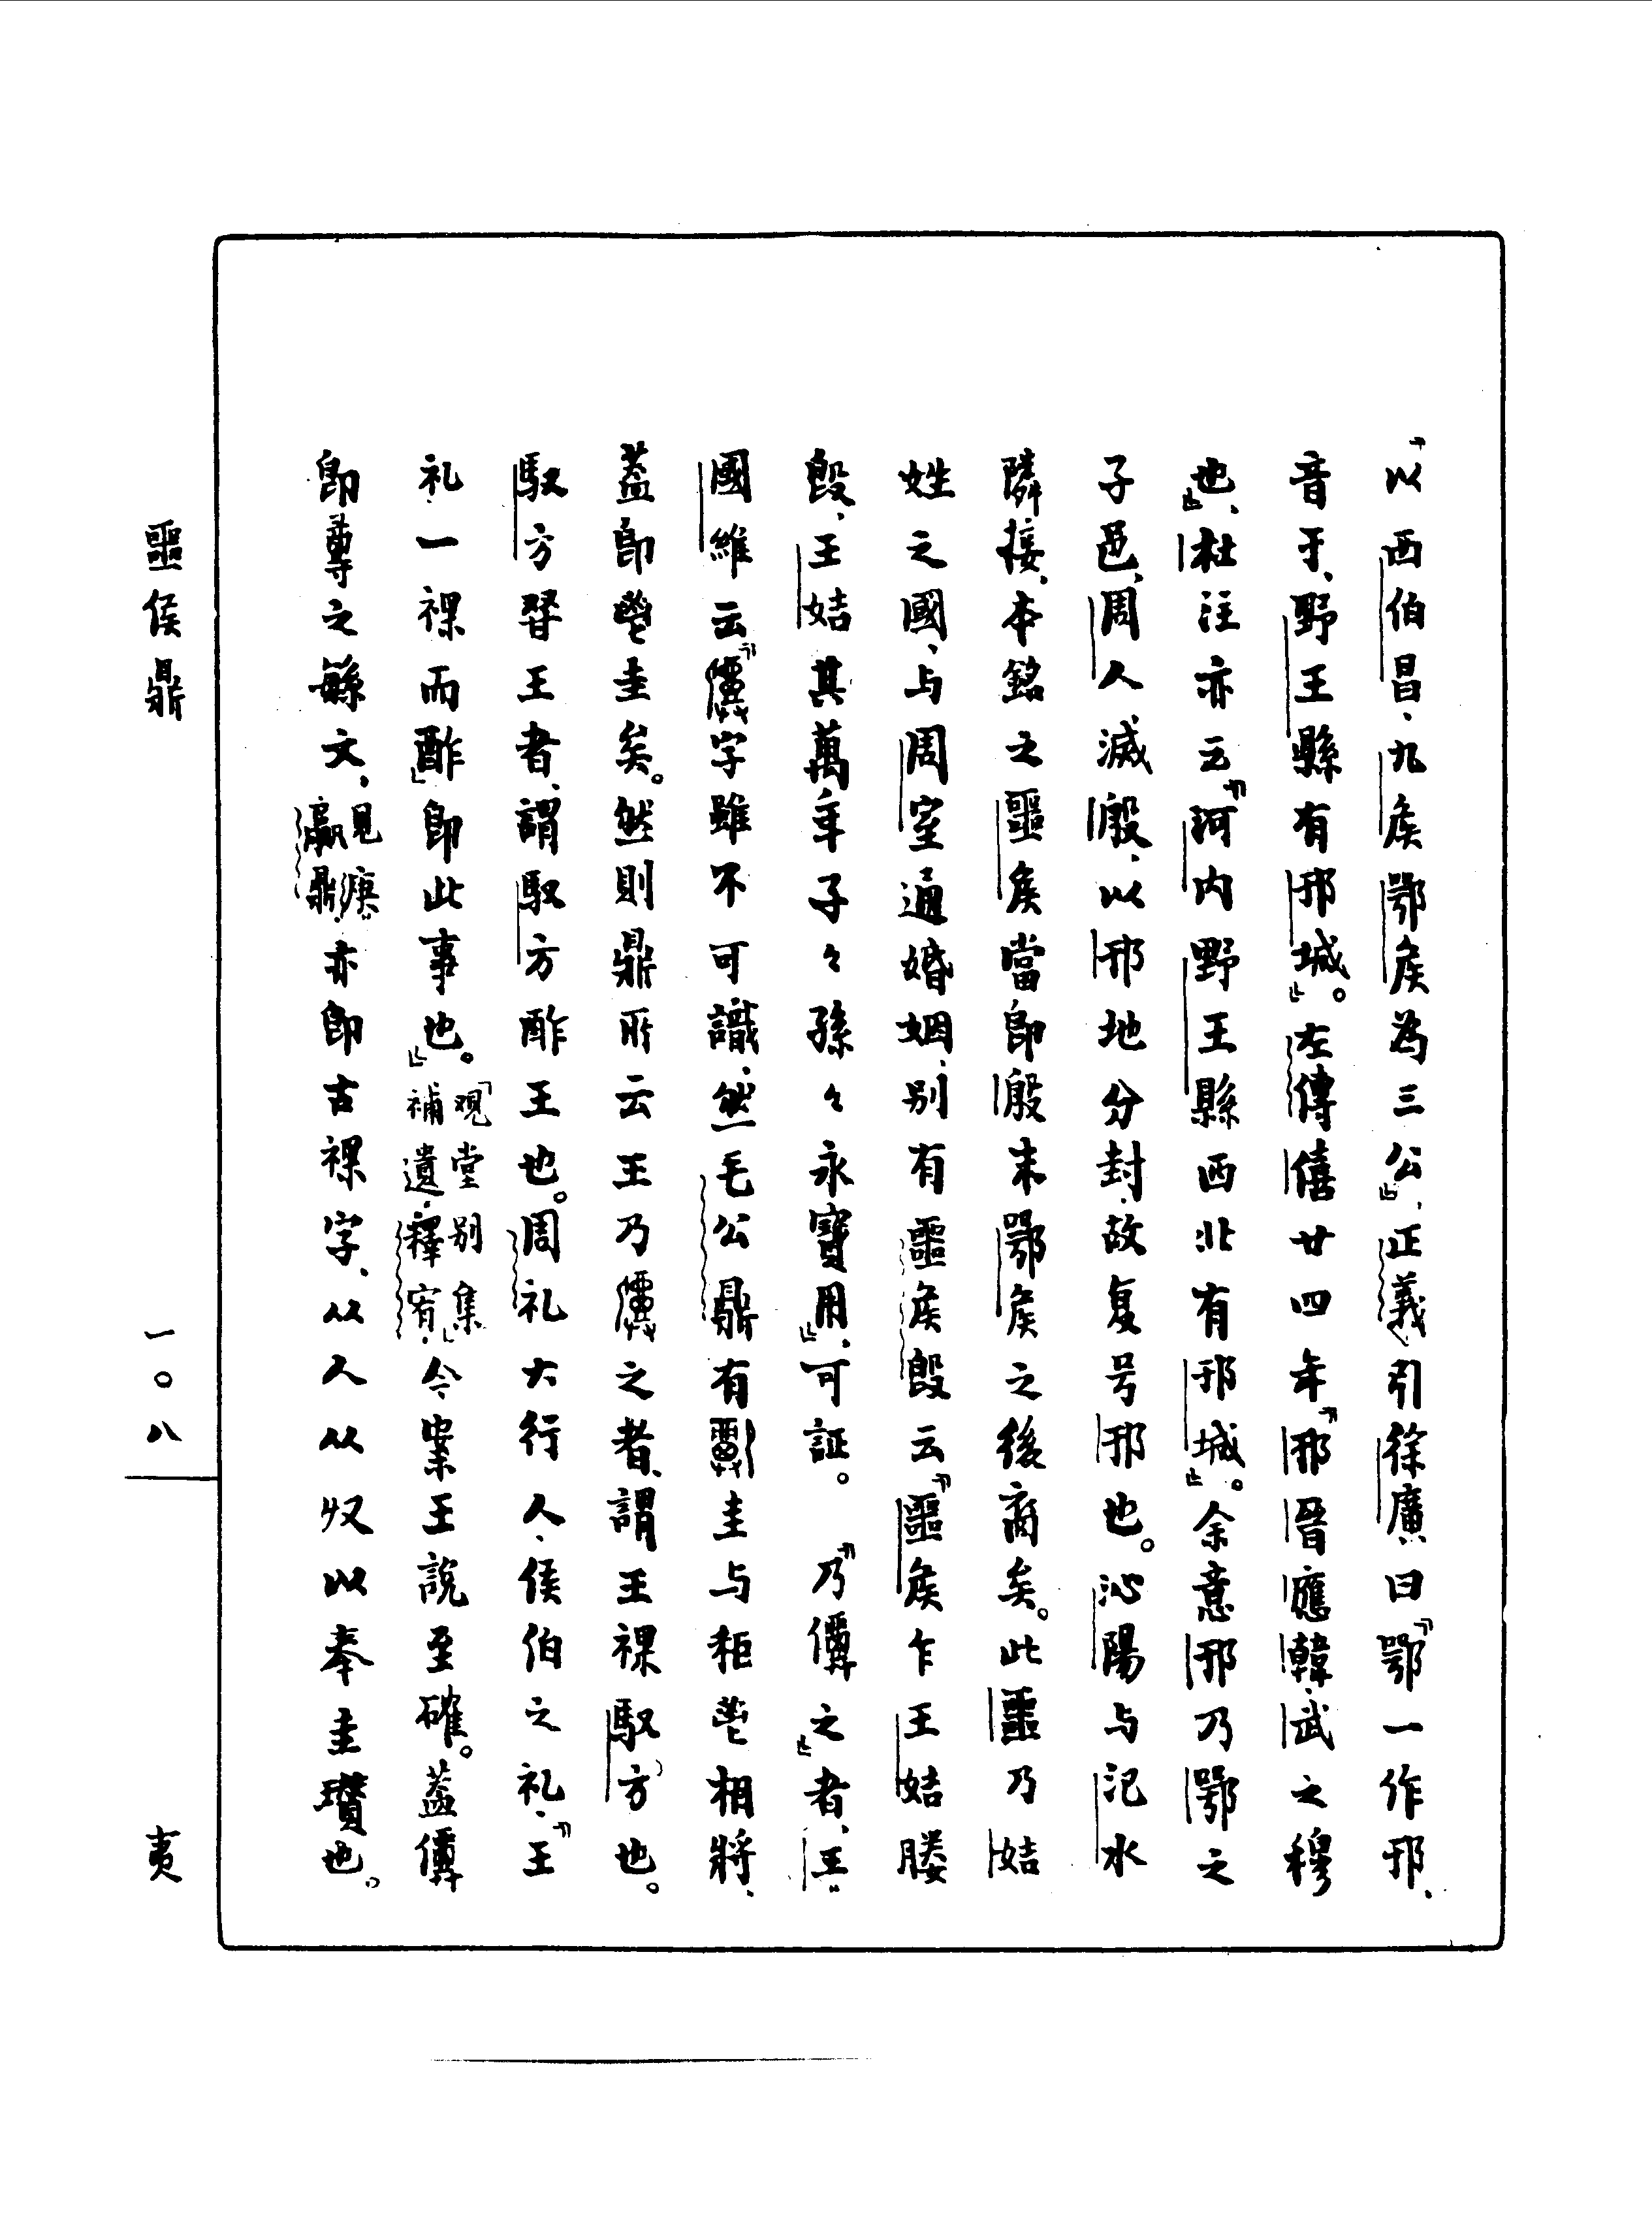 「以西伯昌、九侯鄂侯為三公」，正義引徐廣曰「鄂一作邘，
音于，野王縣有邘城」。左傳僖廿四年「邘晉應韓，武之穆
也」，杜注亦云「河内野王縣西北有邘城」。余意邘乃鄂之
子邑，周人滅殷，以邘地分封，故复号邘也。沁陽与汜水
隣接，本銘之噩侯當即殷末鄂侯之後裔矣。此噩乃姞
姓之國，与周室通婚姻，別有噩侯𣪘云「噩侯乍王姞媵
𣪘，王姞其萬年子々孫々永寶用」，可証。「乃之」者，王
國維云「字雖不可識，然毛公鼎有圭与秬鬯相將，
蓋即鬯圭矣。然則鼎所云王乃之者，謂王祼馭方也。
馭方䇂王者，謂馭方酢王也。周礼大行人，侯伯之礼，『王
礼，一祼而酢』即此事也。」「观堂別集
補遺，釋宥」，今案王說至確。蓋
即尊之緐文，見庚
嬴鼎，亦即古祼字，从人从収以奉圭瓚也。
噩侯鼎
一〇八
夷